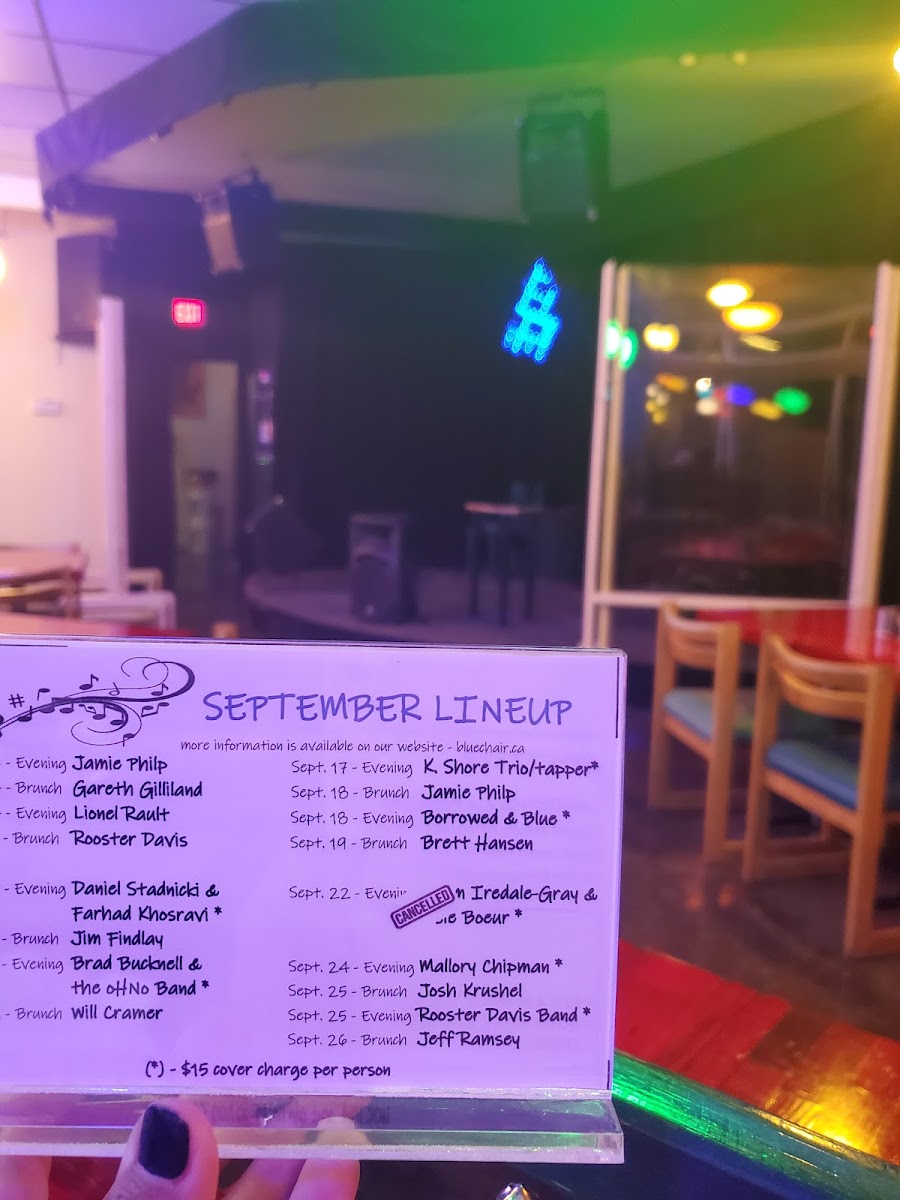 EXIT
SEPTEMBER LINEUP
more information is available on our website - bluechair.ca
- Evening Jamie Philp
- Brunch Gareth Gilliland
- Evening Lionel Rault
- Brunch Rooster Davis
- Evening Daniel Stadnicki &
Farhad Khosravi *
- Brunch Jim Findlay
- Evening Brad Bucknell &
the oHNo Band *
- Brunch Will Cramer
Sept. 17 - Evening K. Shore Trio/tapper*
Sept. 18 - Brunch Jamie Philp
Sept. 18 - Evening Borrowed & Blue *
Sept. 19 - Brunch Brett Hansen
Sept. 22 - Iredale-Gray &
CANCELLED
Boeur *
Sept. 24 - Evening Mallory Chipman *
Sept. 25 - Brunch Josh Krushel
Sept. 25 - Evening Rooster Davis Band *
Sept. 26 - Brunch Jeff Ramsey
(*) - $15 cover charge per person